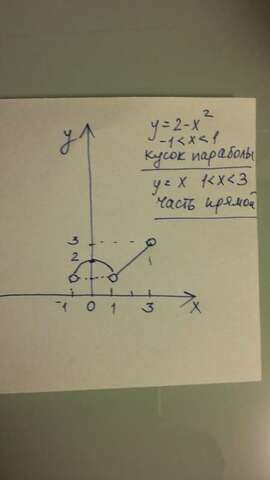 y = 2 - x²
-1 < x < 1
кусок параболы
y = x 1 < x < 3
часть прямой
y
3
2
-1 0 1 3 x